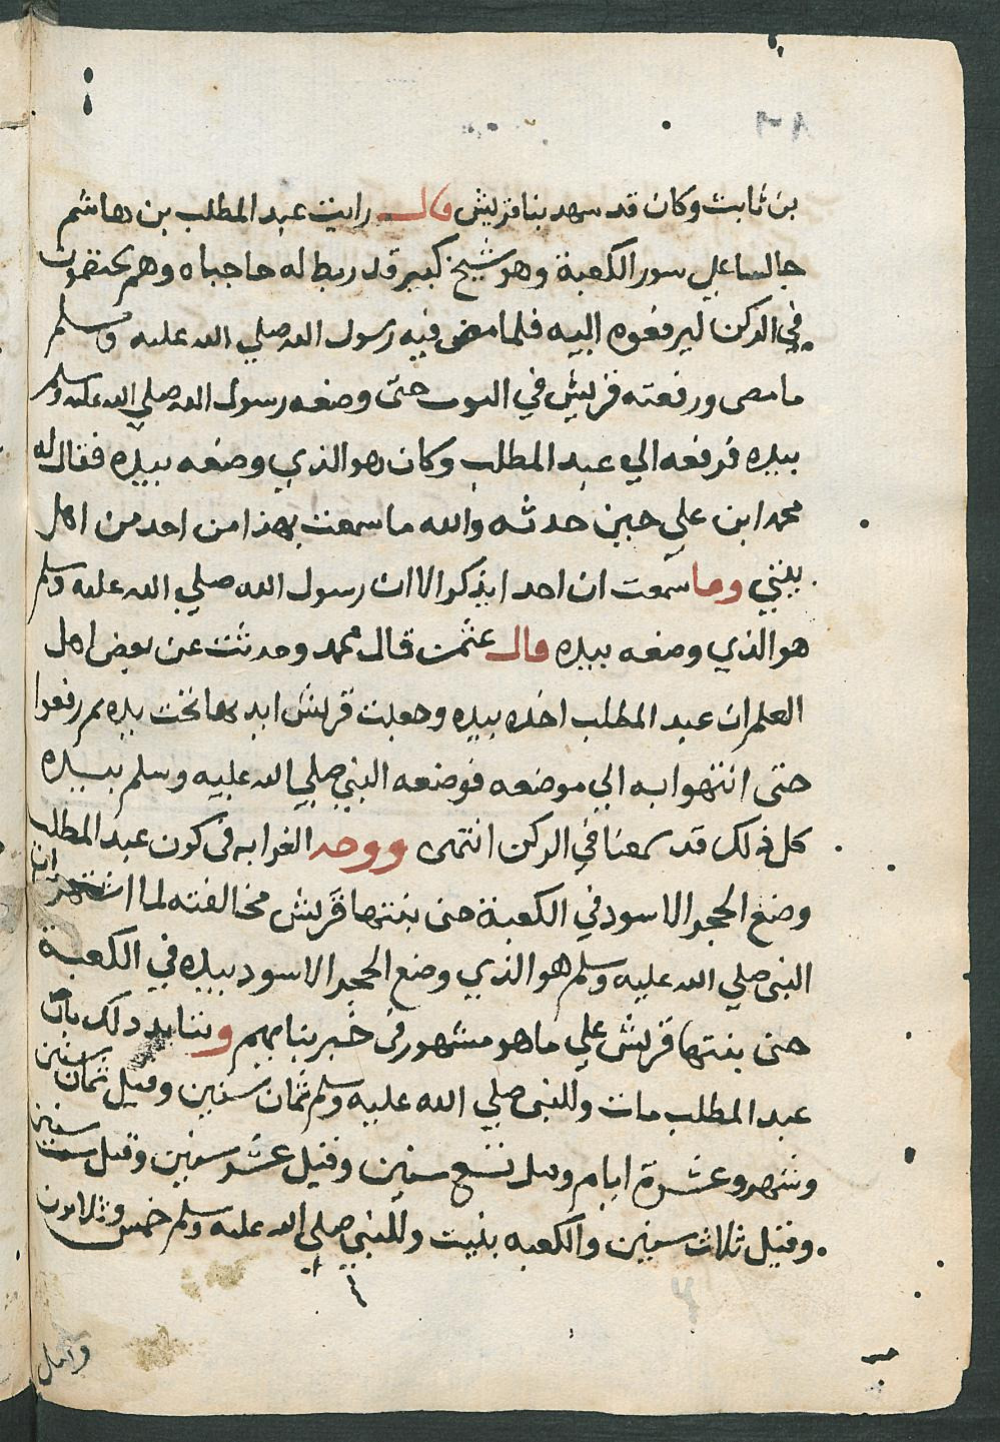 بن ثابت وكان قد شهد بنا قريش قال رايت عبد المطلب بن هاشم
جالسا علي سور الكعبة وهو شيخ كبير قد ربط له حاجباه وهم يختصمون
في الركن ليرفعوه اليه فلما مضي فيه رسول الله صلي الله عليه وسلم
ما مضي ورفعته قريش في الثوب حتي وضعه رسول الله صلي الله عليه وسلم
بيده فرفعه الي عبد المطلب وكان هو الذي وضعه بيده فقال له
محمد ابن علي حين حدثه والله ما سمعت بهذا من احد من اهل
بيتي وما سمعت ان احدا يذكر الا ان رسول الله صلي الله عليه وسلم
هو الذي وضعه بيده قال عثمن قال محمد وحدثت عن بعض اهل
العلم ان عبد المطلب اخذه بيده وجعلت قريش ايديها تحت يده ثم رفعوا
حتي انتهوا به الي موضعه فوضعه النبي صلي الله عليه وسلم بيده
كل ذلك قد سمعنا في الركن انتهي ووجه الغرابه في كون عبد المطلب
وضع الحجر الاسود في الكعبة حتي بنتها قريش مخالفته لما اشتهر ان
النبي صلي الله عليه وسلم هو الذي وضع الحجر الاسود بيده في الكعبة
حتي بنتها قريش علي ما هو مشهور في خبر بنايهم ويتايد ذلك بان
عبد المطلب مات وللنبي صلي الله عليه وسلم ثمان سنين وقيل ثمان سنين
وشهر وعشرة ايام وقيل تسع سنين وقيل عشر سنين وقيل ست سنين
وقيل ثلاث سنين والكعبه بنيت وللنبي صلي الله عليه وسلم خمس وثلاثون